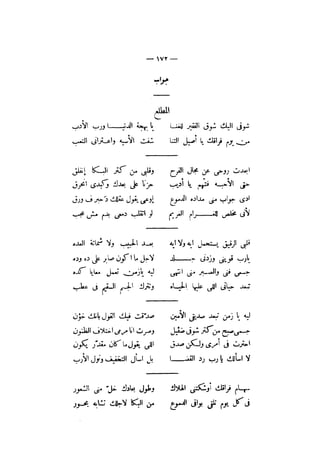 — ١٧٢ —
جواب
المطلع
شوقى اليك شوق الفقير للغنا يا بهجة الدنيا ورب الأدب
من يوم فراقك يا أصيل الثنا شفت الأسيه واعترانى التعب
ابعدت روحى عن مجال الفرح وقلبى من كتر البكا إنغلق
حتى الأحبه فتهم يا أديب حزنا على بعدك وكبدى انحرق
ادى جواب منى مداده الدموع إوعى يقول عقلك دحبر ف ورق
لأنى مخلص للغرام الغريم لو انقلب دمعى بدم مش عجب
قلبى الرقيق يستحمل ايه ولا ايه بعد الحبيب ولا شماتة العده
يارب قوينى وزدنى جلد لاجل ما اكون صابر على ده وده
جسمى فنى والصبر منى انتهى ليه يازمن تعمل معايا كده
تبعد حبابى اللى عليها الحياه وتترك الجسم السقيم فى عطب
ليه يا زمن تبعد صديقى الأمين صدقت فيك القول بانك خؤن
جسمى صبح من كتر شوقى ضئيل وصرت انا مرمى اختلاف الظنون
احترت فى أمرى ولكن صدق اللى يقول ما كان مقدر يكون
لا اسألك يارب رد القضا بل اسأل التخفيف ونول الأرب
سهام فراقك أوشكتنى الهلاك وطول بعادك خل منى الشعور
فى كل يوم تلقى بواقى الدموع من البكا لاجلك تشابه بحور